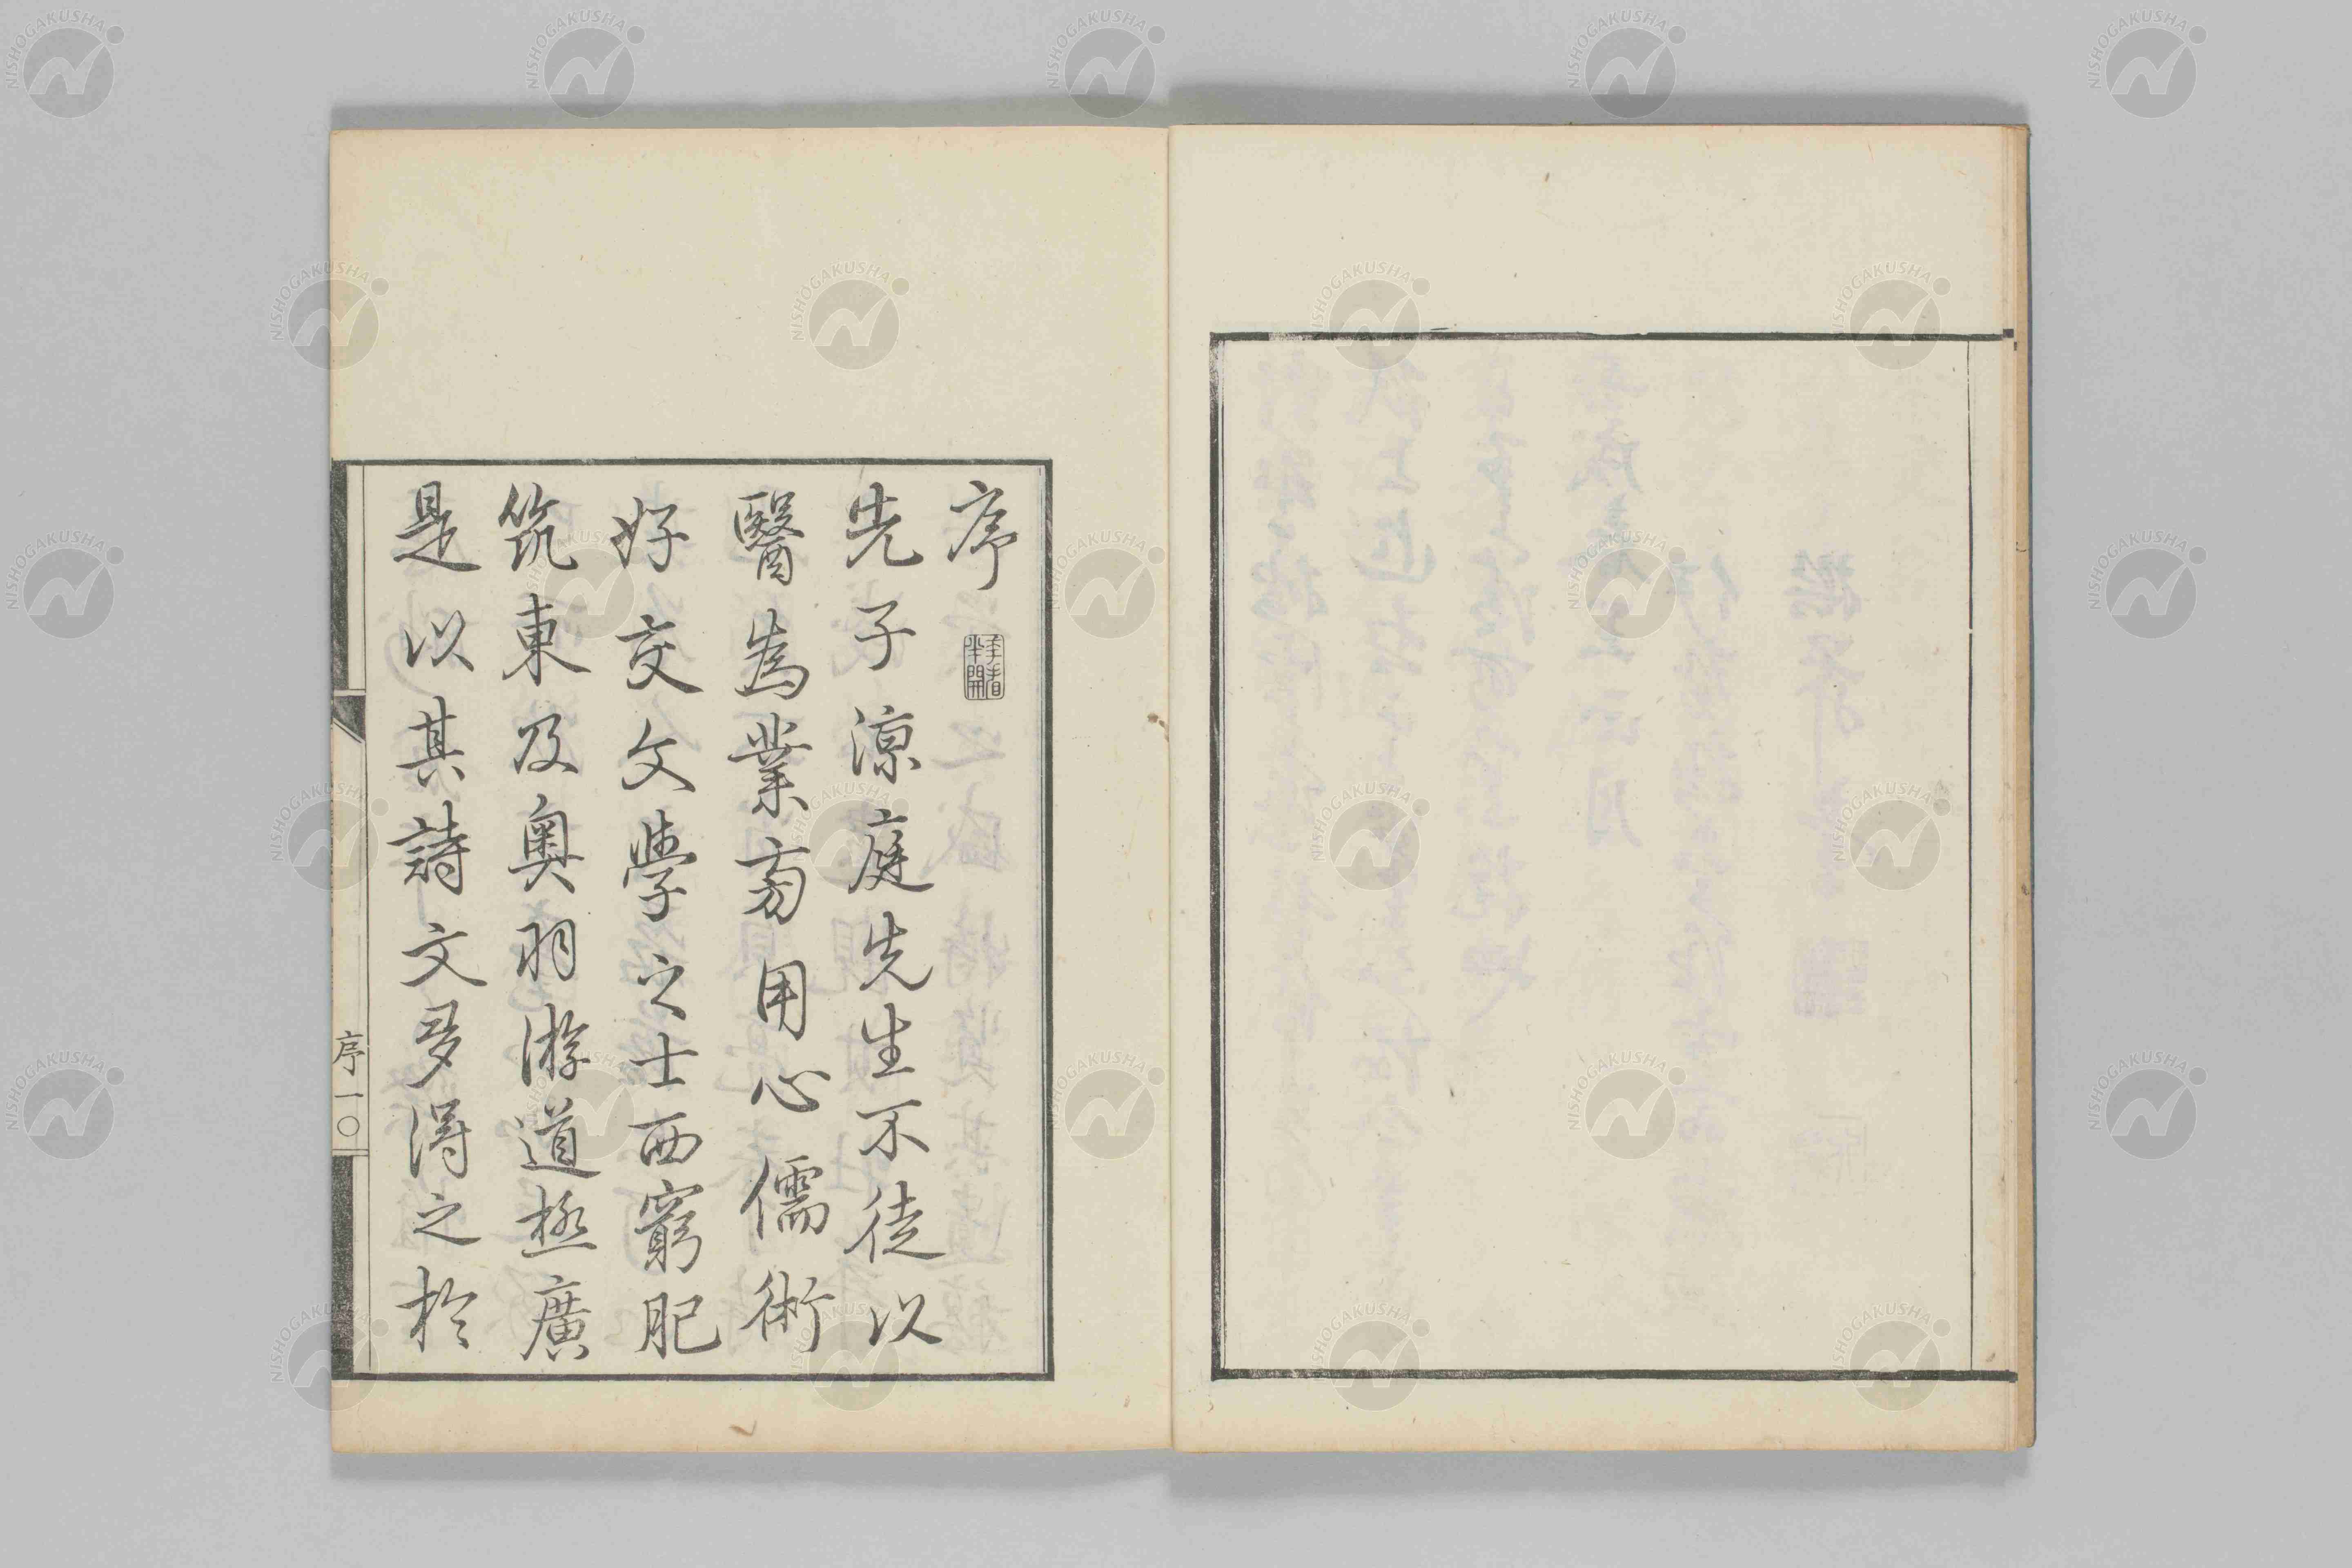 序
先子涼庭先生不徒以
醫為業旁用心儒術
好交文學之士西窮肥
筑東及奥羽游道極廣
是以其詩文多得之於
序一〇
NISHOGAKUSHA